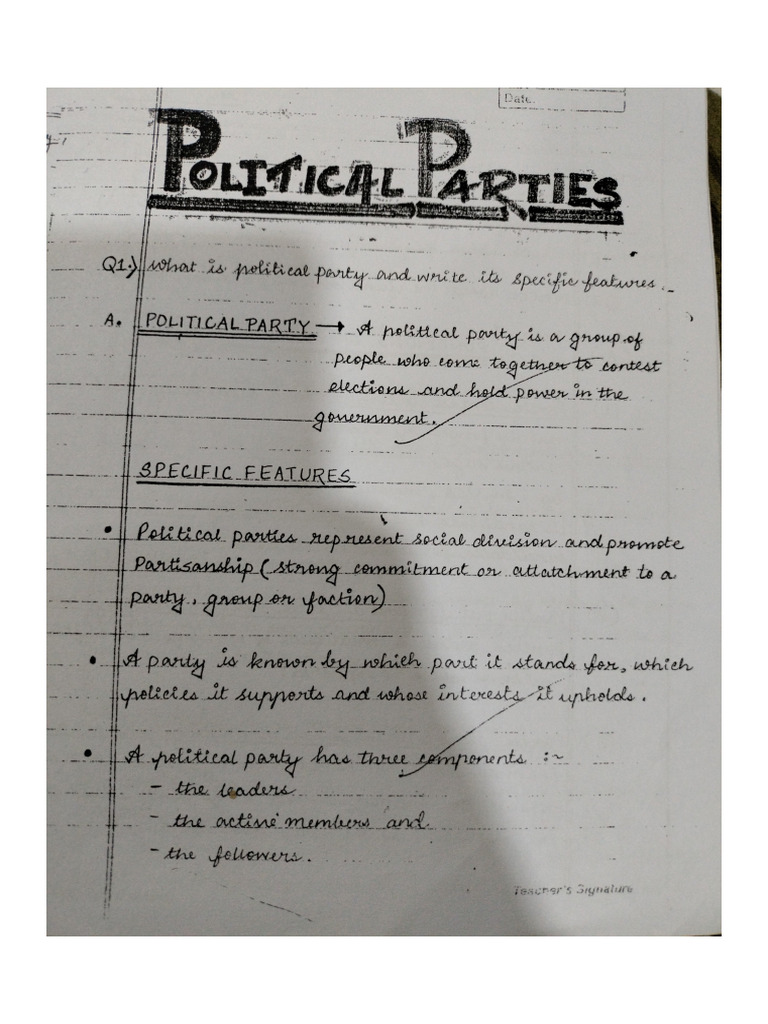 Date.
POLITICAL PARTIES
Q1.) What is political party and write its specific features.
A. POLITICAL PARTY → A political party is a group of
people who come together to contest
elections and hold power in the
government.
SPECIFIC FEATURES
• Political parties represent social division and promote
Partisanship (strong commitment or attatchment to a
party, group or faction)
• A party is known by which part it stands for, which
policies it supports and whose interests it upholds.
• A political party has three components :~
- the leaders
- the active members and
- the followers.
Teacher's Signature